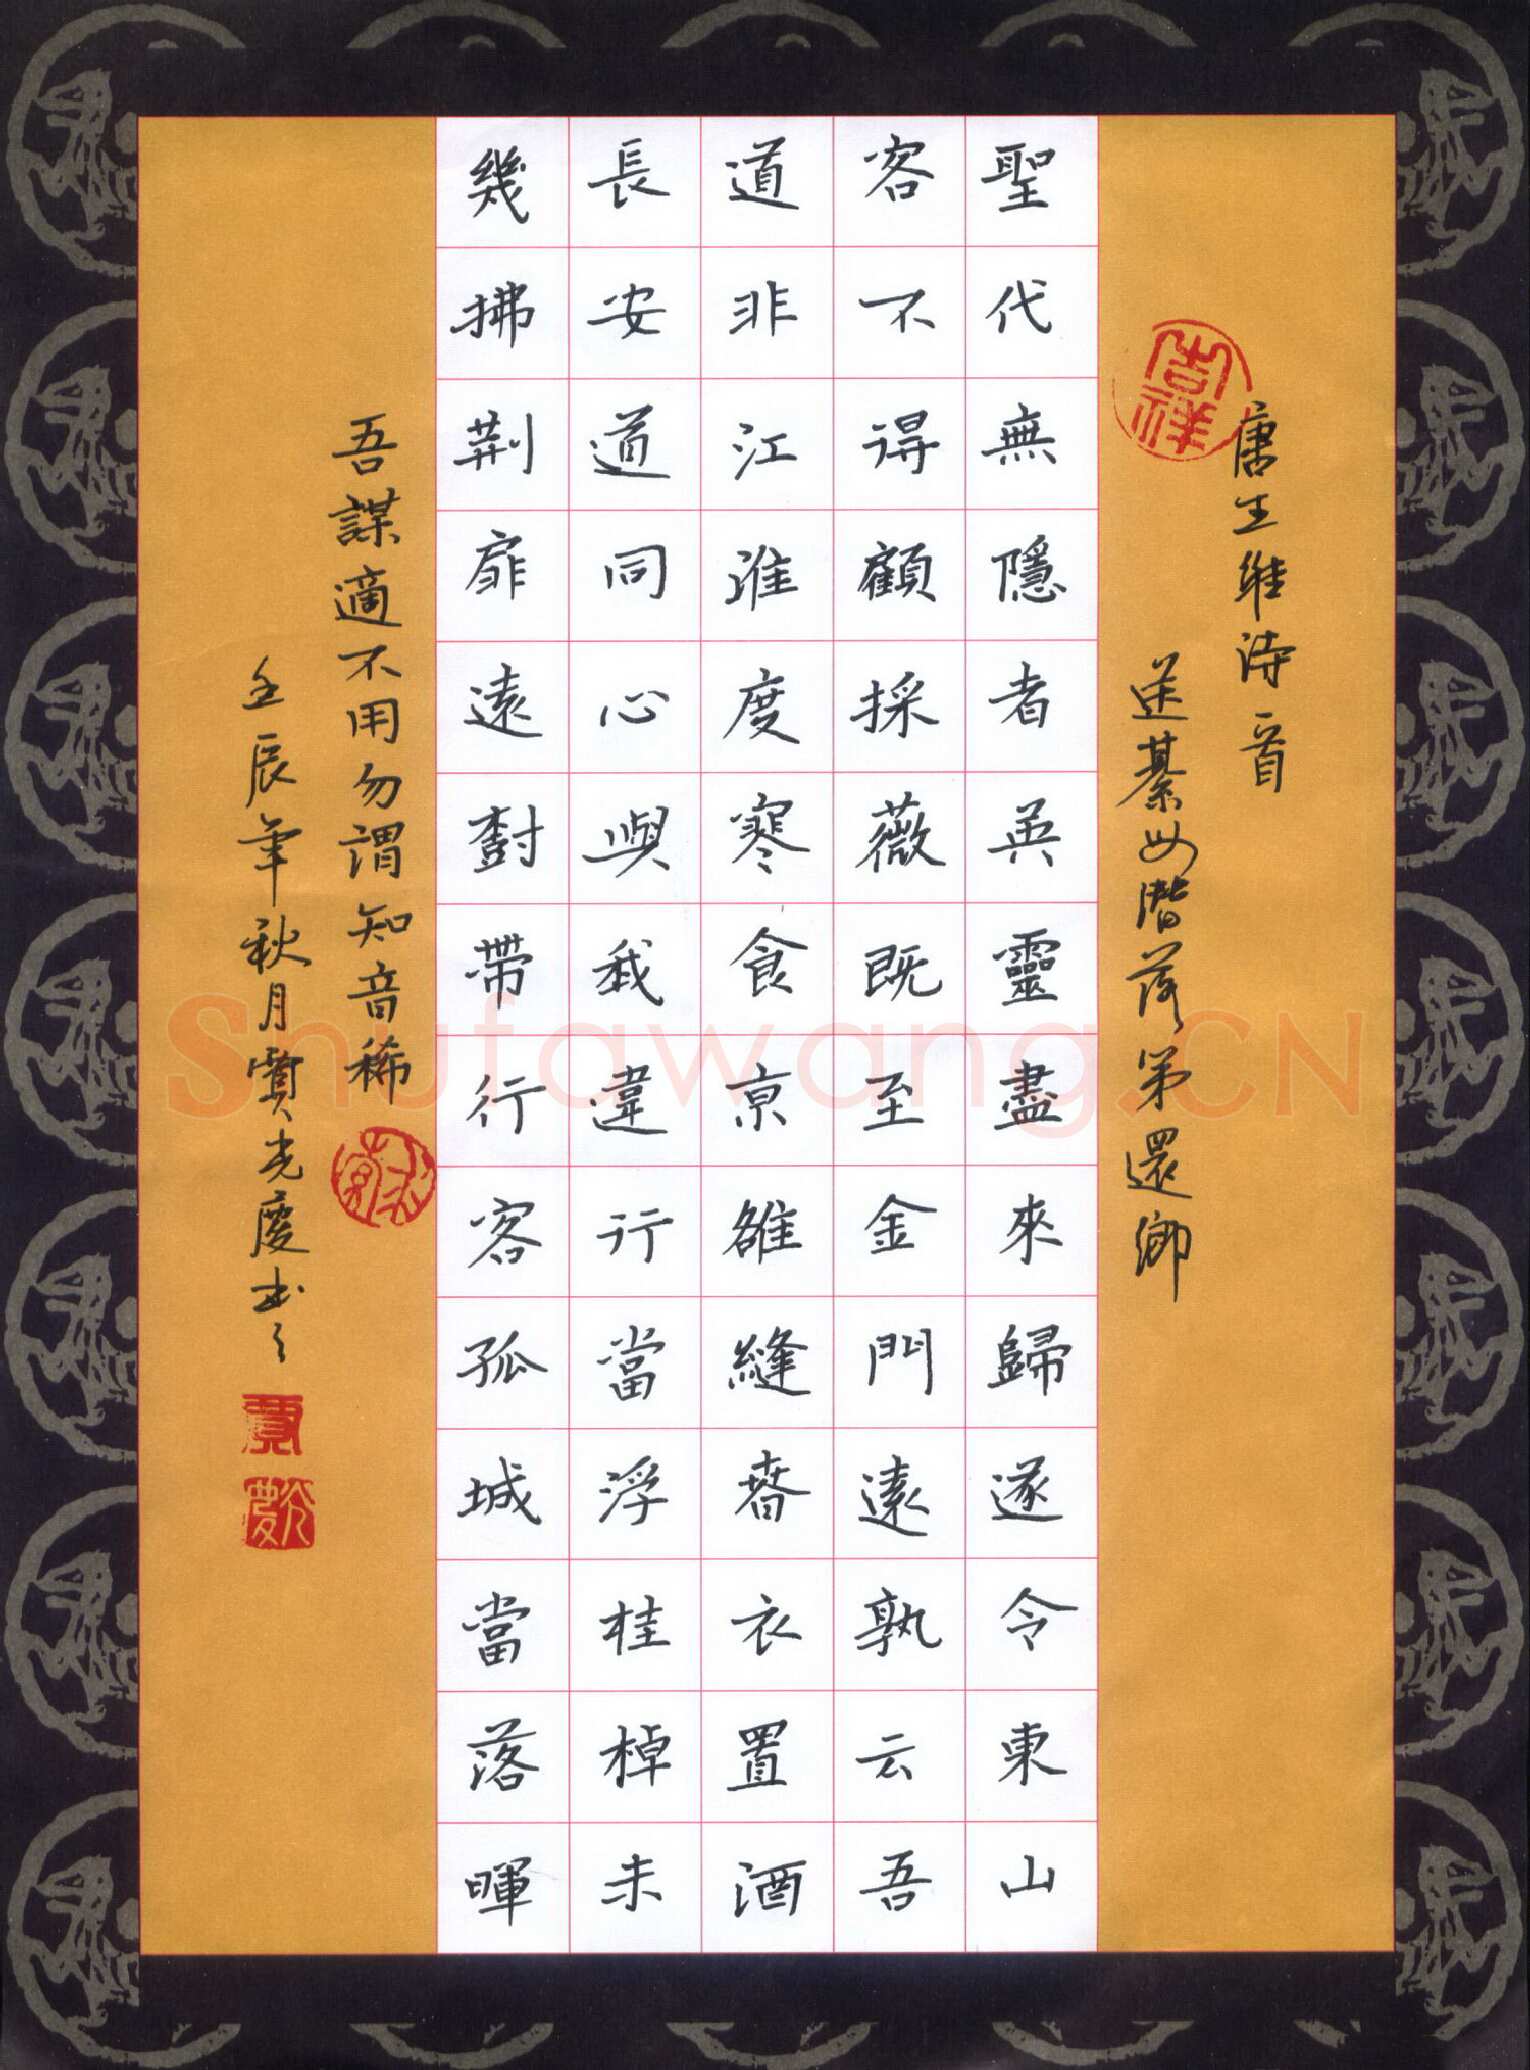 唐王维诗一首
吉祥
送綦毋潛落第還鄉
聖代無隱者英靈盡來歸遂令東山
客不得顧採薇既至金門遠孰云吾
道非江淮度寒食京雒縫春衣置酒
長安道同心與我違行當浮桂棹未
幾拂荆扉遠樹帶行客孤城當落暉
吾謀適不用勿謂知音稀
壬辰年秋月賈光慶书之
Shufawang.CN